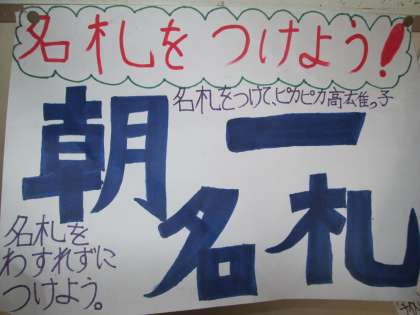 名札をつけよう!
名札をつけて、ピカピカ高雄っ子
朝一
名札
名札を
わすれずに
つけよう。